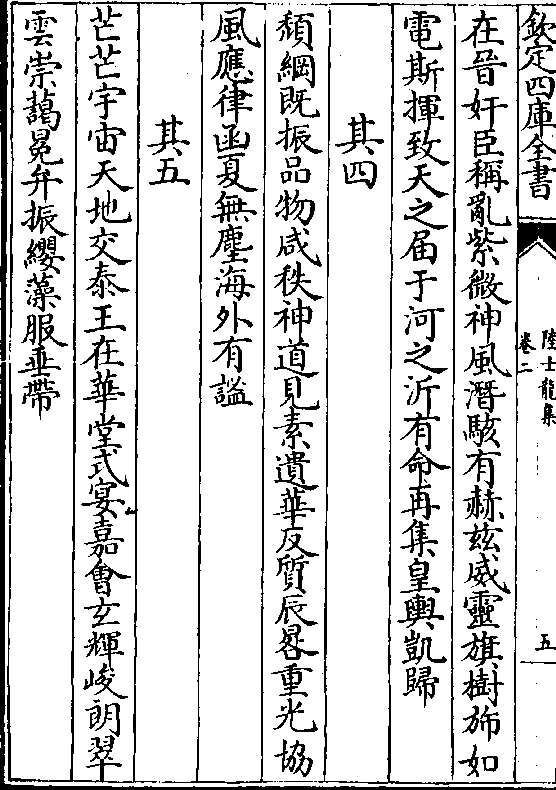 欽定四庫全書
陸士龍集
卷二
五
在晉奸臣稱亂紫微神風潛駭有赫兹威靈旗樹斾如
電斯揮致天之届于河之沂有命再集皇輿凱歸
其四
頽綱既振品物咸秩神道見素遺華反質辰晷重光協
風應律函夏無塵海外有謐
其五
芒芒宇宙天地交泰王在華堂式宴嘉會玄輝峻朗翠
雲崇藹冕弁振纓藻服垂帶